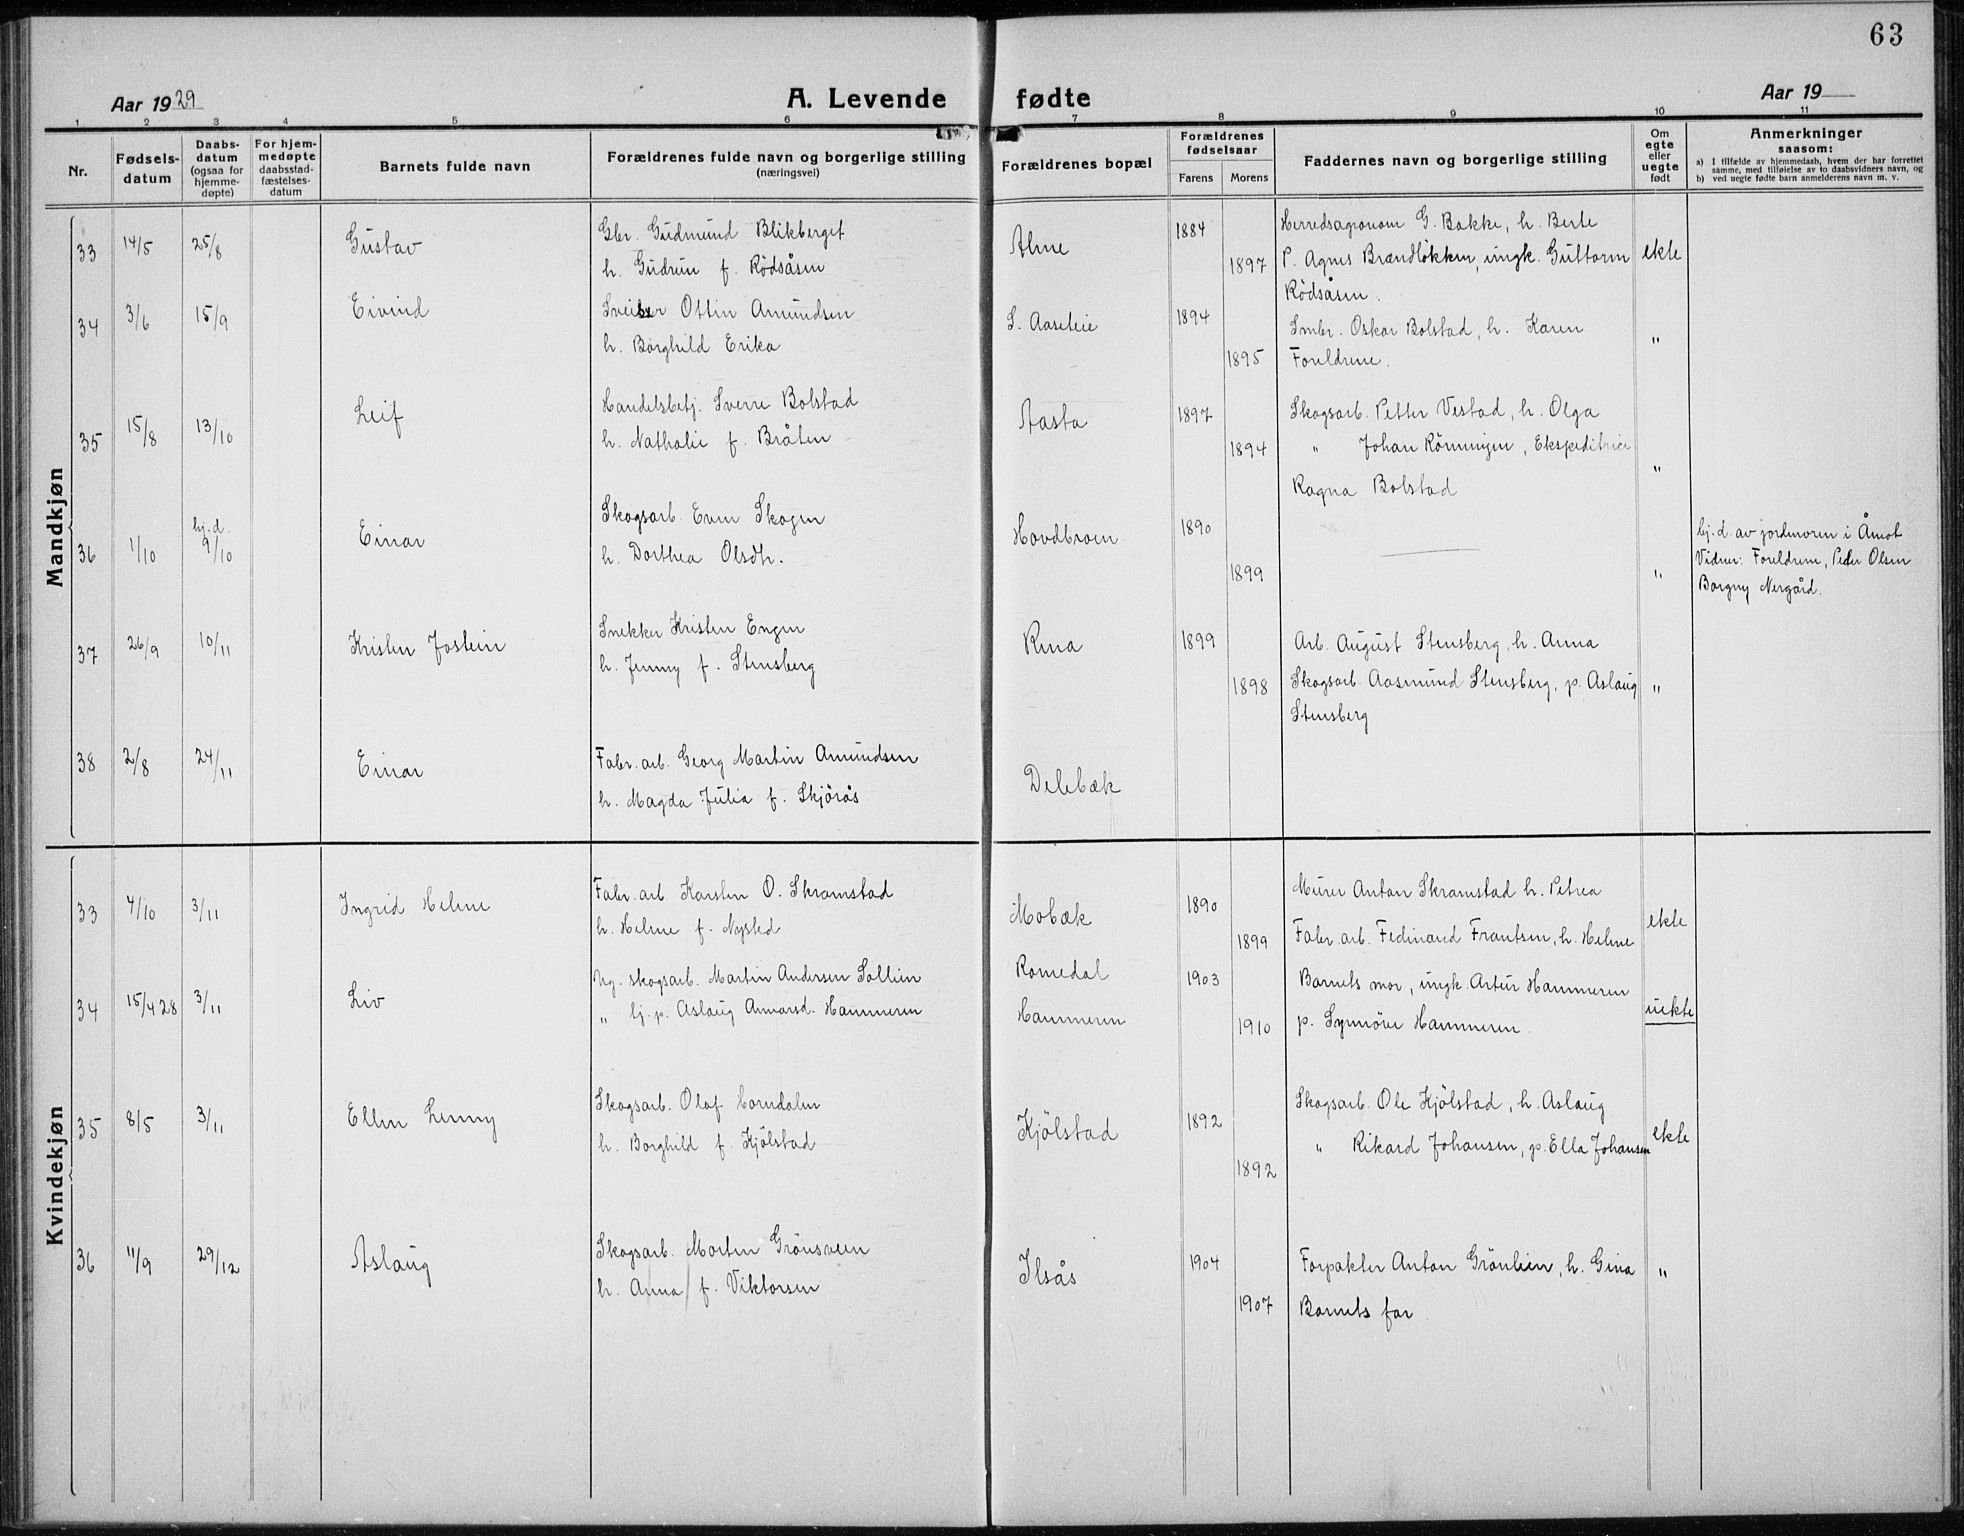 63
Aar 1929
A. Levende fødte
Aar 19
1 2 3 4 5 6 7 8 9 10 11
Nr.
Fødsels-
datum
Daabs-
datum
(ogsaa for
hjemme-
døpte)
For hjem-
medøpte
daabsstad-
fæstelses-
datum
Barnets fulde navn
Forældrenes fulde navn og borgerlige stilling
(næringsvei)
Forældrenes bopæl
Forældrenes
fødselsaar
Farens Morens
Faddernes navn og borgerlige stilling
Om
egte
eller
uegte
født
Anmerkninger
saasom:
a) I tilfælde av hjemmedaab, hvem der har forrettet
samme, med tilføielse av to daabsvidners navn, og
b) ved uegte fødte barn anmelderens navn m. v.
Mandkjøn
33 14/5 25/8 Gustav
Gbr. Gudmund Blikberget
h. Gudrun f. Rödsåsen
Alme
1884
1897
Herredsagronom G. Bakke, h. Berte
P. Agnes Brændløkken, ungk. Guttorm
Rödsåsen.
ekte
34 3/6 15/9 Eivind
Sveiser Ottin Amundsen
h. Borghild Erika
S. Aaseteie
1894
1895
Smbr. Oskar Bolstad, h. Karen
Foreldrene.
"
35 15/8 13/10 Leif
Handelsbetj. Sverre Bolstad
h. Nathalie f. Bråten
Aasta
1897
1894
Skogsarb. Petter Vestad, h. Olga
" Johan Rönningen, Ekspeditrice
Ragna Bolstad
"
36 1/10 hj. d. 9/10 Einar
Skogsarb. Even Skogen
h. Dorthea Olsdt.
Hovdbroen
1890
1899
"
hj. d. av jordmoren i Åmot
Vidner: Foreldrene, Peder Olsen
Borgny Nergård.
37 26/9 10/11 Kristen Jostein
Snekker Kristen Engen
h. Jenny f. Stensberg
Rena
1899
1898
Arb. August Stensberg, h. Anna
Skogsarb. Aasmund Stensberg, p. Aslaug
Stensberg
"
38 2/8 24/11 Einar
Fabr. arb. Georg Martin Amundsen
h. Magda Julia f. Skjörås
Delebæk
Kvindekjøn
33 4/10 3/11 Ingrid Helene
Fabr. arb. Karsten O. Skramstad
h. Helene f. Nysted
Mobæk
1890
1899
Murer Anton Skramstad h. Petrea
Fabr. arb. Ferdinand Frantsen, h. Helene
ekte
34 15/4 28 3/11 Liv
Ug. skogsarb. Martin Andersen Sollien
" hj. p. Aslaug Annarsd. Hammeren
Romedal
Hammeren
1903
1910
Barnets mor, ungk. Artur Hammeren
p. Synnöve Hammeren.
uekte
35 8/5 3/11 Ellen Lenny
Skogsarb. Olaf
h. Borghild f. Kjölstad
Kjölstad
1892
1892
Skogsarb. Ole Kjölstad, h. Aslaug
" Rikard Johansen, p. Ella Johansen
ekte
36 11/9 29/12 Aslaug
Skogsarb. Morten Grönsveen
h. Anna f. Viktorsen
Ilsås
1904
1907
Forpakter Anton Grönlien, h. Gina
Barnets far.
"